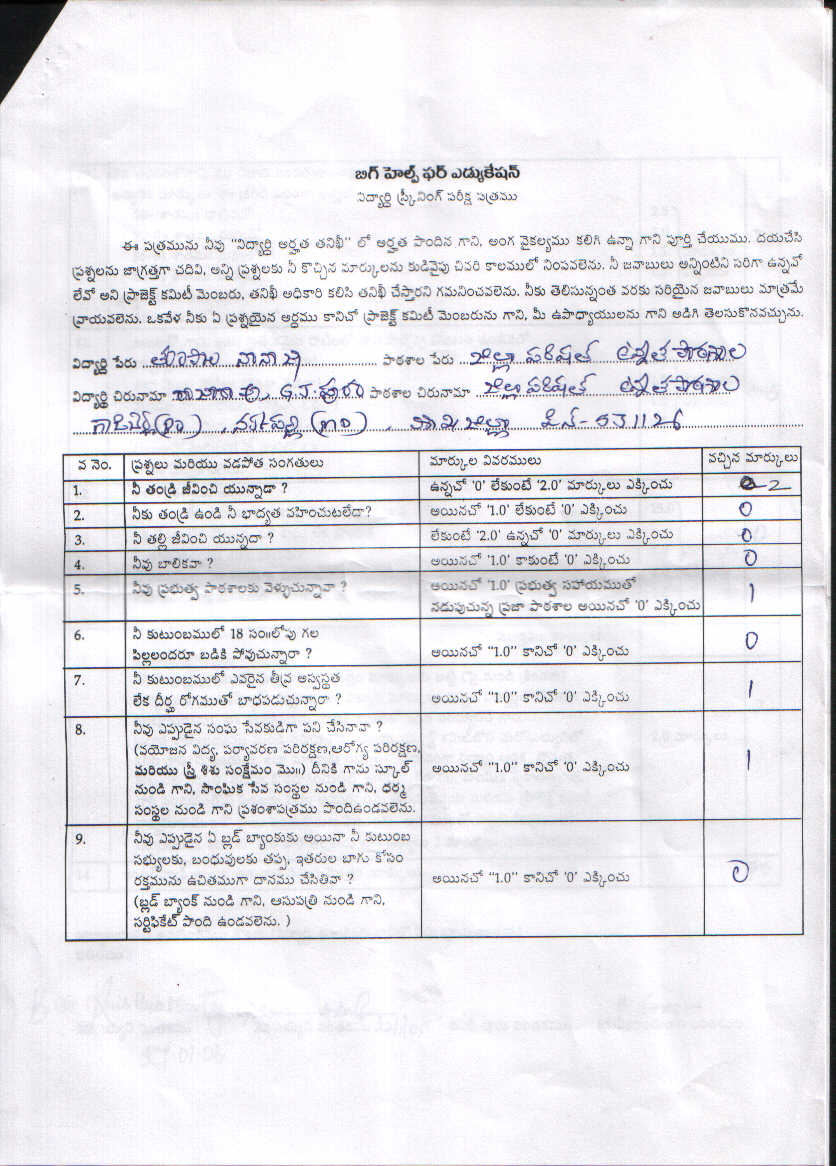 బిగ్ హెల్ప్ ఫర్ ఎడ్యుకేషన్
విద్యార్థి స్క్రీనింగ్ పరీక్ష పత్రము
ఈ పత్రమును నీవు "విద్యార్థి అర్హత తనిఖీ" లో అర్హత పొందిన గాని, అంగ వైకల్యము కలిగి ఉన్నా గాని పూర్తి చేయుము. దయచేసి
ప్రశ్నలను జాగ్రత్తగా చదివి, అన్ని ప్రశ్నలకు నీ కొచ్చిన మార్కులను కుడివైపు చివరి కాలములో నింపవలెను. నీ జవాబులు అన్నింటిని సరిగా ఉన్నవో
లేవో అని ప్రాజెక్ట్ కమిటీ మెంబరు, తనిఖీ అధికారి కలిసి తనిఖీ చేస్తారని గమనించవలెను. నీకు తెలిసున్నంత వరకు సరియైన జవాబులు మాత్రమే
వ్రాయవలెను. ఒకవేళ నీకు ఏ ప్రశ్నయైన అర్ధము కానిచో ప్రాజెక్ట్ కమిటీ మెంబరును గాని, మీ ఉపాధ్యాయులను గాని అడిగి తెలసుకొనవచ్చును.
విద్యార్థి పేరు నానాజీ పాఠశాల పేరు జిల్లా పరిషత్ ఉన్నత పాఠశాల
విద్యార్థి చిరునామా G.J. పురం పాఠశాల చిరునామా జిల్లా పరిషత్ ఉన్నత పాఠశాల
జిల్లా పిన్ - 531126
వ నెం. ప్రశ్నలు మరియు వడపోత సంగతులు మార్కుల వివరములు వచ్చిన మార్కులు
1. నీ తండ్రి జీవించి యున్నాడా ? ఉన్నచో '0' లేకుంటే '2.0' మార్కులు ఎక్కించు 2
2. నీకు తండ్రి ఉండి నీ భాద్యత వహించుటలేదా? అయినచో '1.0' లేకుంటే '0' ఎక్కించు 0
3. నీ తల్లి జీవించి యున్నదా ? లేకుంటే '2.0' ఉన్నచో '0' మార్కులు ఎక్కించు 0
4. నీవు బాలికవా ? అయినచో '1.0' కాకుంటే '0' ఎక్కించు 0
5. నీవు ప్రభుత్వ పాఠశాలకు వెళ్ళుచున్నావా ? అయినచో '1.0' ప్రభుత్వ సహాయముతో 1
నడుపుచున్న ప్రజా పాఠశాల అయినచో '0' ఎక్కించు
6. నీ కుటుంబములో 18 సం॥లోపు గల
పిల్లలందరూ బడికి పోవుచున్నారా ? అయినచో "1.0" కానిచో '0' ఎక్కించు 0
7. నీ కుటుంబములో ఎవరైన తీవ్ర అస్వస్థత
లేక దీర్ఘ రోగముతో బాధపడుచున్నారా ? అయినచో "1.0" కానిచో '0' ఎక్కించు 1
8. నీవు ఎప్పుడైన సంఘ సేవకుడిగా పని చేసినావా ?
(వయోజన విద్య, పర్యావరణ పరిరక్షణ,ఆరోగ్య పరిరక్షణ,
మరియు స్త్రీ శిశు సంక్షేమం మొ॥) దీనికి గాను స్కూల్ అయినచో "1.0" కానిచో '0' ఎక్కించు 1
నుండి గాని, సాంఘిక సేవ సంస్థల నుండి గాని, ధర్మ
సంస్థల నుండి గాని ప్రశంశాపత్రము పొందిఉండవలెను.
9. నీవు ఎప్పుడైన ఏ బ్లడ్ బ్యాంకుకు అయినా నీ కుటుంబ
సభ్యులకు, బంధువులకు తప్ప, ఇతరుల బాగు కోసం
రక్తమును ఉచితముగా దానము చేసితివా ? అయినచో "1.0" కానిచో '0' ఎక్కించు 0
(బ్లడ్ బ్యాంక్ నుండి గాని, ఆసుపత్రి నుండి గాని,
సర్టిఫికేట్ పొంది ఉండవలెను. )